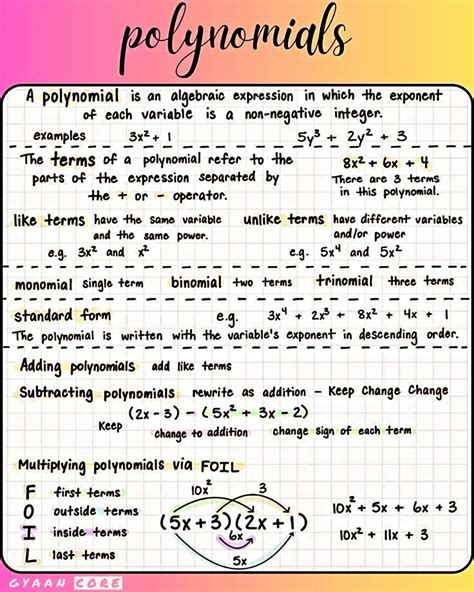 polynomials
A polynomial is an algebraic expression in which the exponent
of each variable is a non-negative integer.
examples 3x² + 1 5y³ + 2y² + 3
The terms of a polynomial refer to the
parts of the expression separated by
the + or - operator.
8x² + 6x + 4
There are 3 terms
in this polynomial.
like terms have the same variable
and the same power.
e.g. 3x² and x²
unlike terms have different variables
and/or power
e.g. 5x⁴ and 5x²
monomial single term binomial two terms trinomial three terms
standard form e.g. 3x⁴ + 2x³ + 8x² + 4x + 1
The polynomial is written with the variable's exponent in descending order.
Adding polynomials add like terms
Subtracting polynomials rewrite as addition – Keep Change Change
(2x - 3) - (5x² + 3x - 2)
Keep change to addition change sign of each term
Multiplying polynomials via FOIL
F first terms
O outside terms
I inside terms
L last terms
10x² 3
(5x + 3)(2x + 1)
6x
5x
10x² + 5x + 6x + 3
10x² + 11x + 3
GYAAN CORE